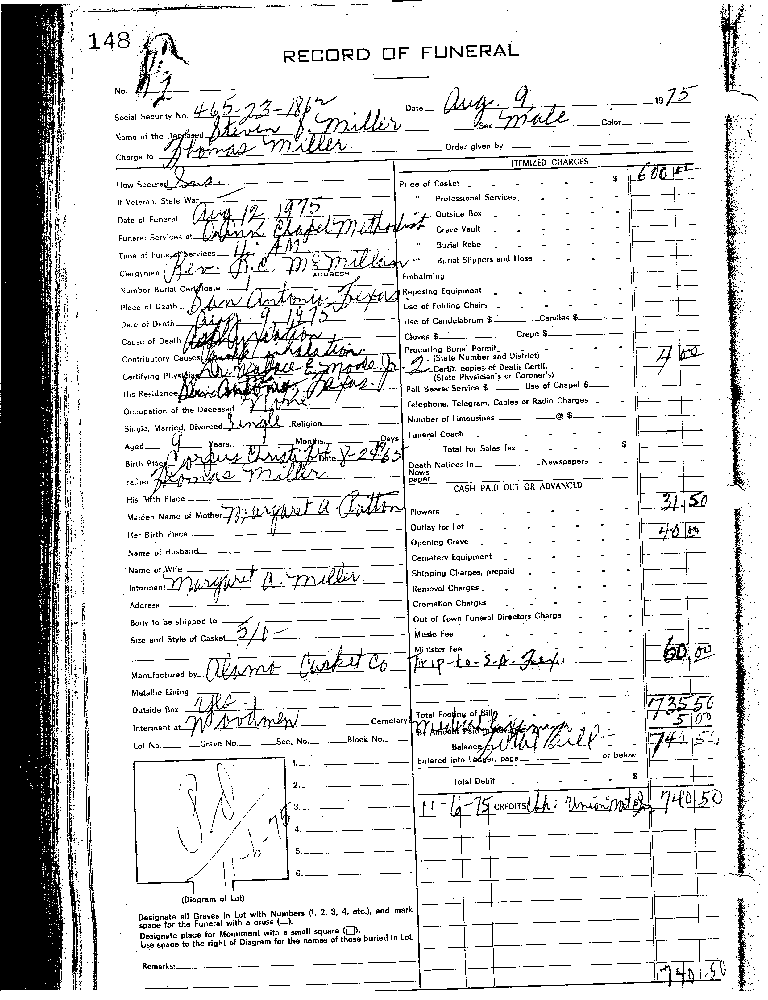 148
RECORD OF FUNERAL
No.
Social Security No. 465-23-1862
Date Aug. 9 1975
Name of the Deceased Steven J. Miller Sex Male Color
Charge to Thomas Miller Order given by
How Secured Ins.
If Veteran, State War
Date of Funeral Aug 12 1975
Funeral Services at Chapel Methodist
Time of Funeral Services AM
Clergyman Rev. McMillan
ADDRESS
Number Burial Certificate
Place of Death San Antonio, Texas
Date of Death Aug 9 1975
Cause of Death
Contributory Causes inhalation
Certifying Physician Wallace E. Moore Jr
His Residence San Antonio Texas.
Occupation of the Deceased None
Single, Married, Divorced Single Religion
Aged 9 Years Months Days
Birth Place Corpus Christi Date 8-29-65
Father Thomas Miller
His Birth Place
Maiden Name of Mother Margaret A Patton
Her Birth Place
Name of Husband
Name of Wife
Informant Margaret A. Miller
Address
Body to be shipped to
Size and Style of Casket 5/0
Manufactured by Alamo Casket Co
Metallic Lining
Outside Box yes
Interment at Woodmen Cemetery
Lot No. Grave No. Sec. No. Block No.
1.
2.
3.
4.
5.
6.
Pd
11-6-75
(Diagram of Lot)
Designate all Graves in Lot with Numbers (1, 2, 3, 4, etc.), and mark
space for the Funeral with a cross
Designate place for Monument with a small square
Use space to the right of Diagram for the names of those buried in Lot.
Remarks:
ITEMIZED CHARGES
Price of Casket $ 600
" Professional Services
" Outside Box
" Grave Vault
" Burial Robe
" Burial Slippers and Hose
Embalming
Reposing Equipment
Use of Folding Chairs
Use of Candelabrum $ Candles $
Gloves $ Crepe $
Procuring Burial Permit
(State Number and District)
2 Certif. copies of Death Certif. 4 00
(State Physician's or Coroner's)
Pall Bearer Service $ Use of Chapel $
Telephone, Telegram, Cables or Radio Charges
Number of Limousines @ $
Funeral Coach
Total for Sales Tax $
Death Notices in Newspapers
News
paper
CASH PAID OUT OR ADVANCED
Flowers 31.50
Outlay for Lot
Opening Grave 40 00
Cemetery Equipment
Shipping Charges, prepaid
Removal Charges
Cremation Charges
Out of Town Funeral Directors Charge
Music Fee
Minister Fee
Trip-to-S.A. Tex. 60 00
Total Footing of Bill 735 50
5 00
Balance Total Bill 740 50
Entered into Ledger, page or below
Total Debit $
11-6-75 CREDITS 740 50
740.50